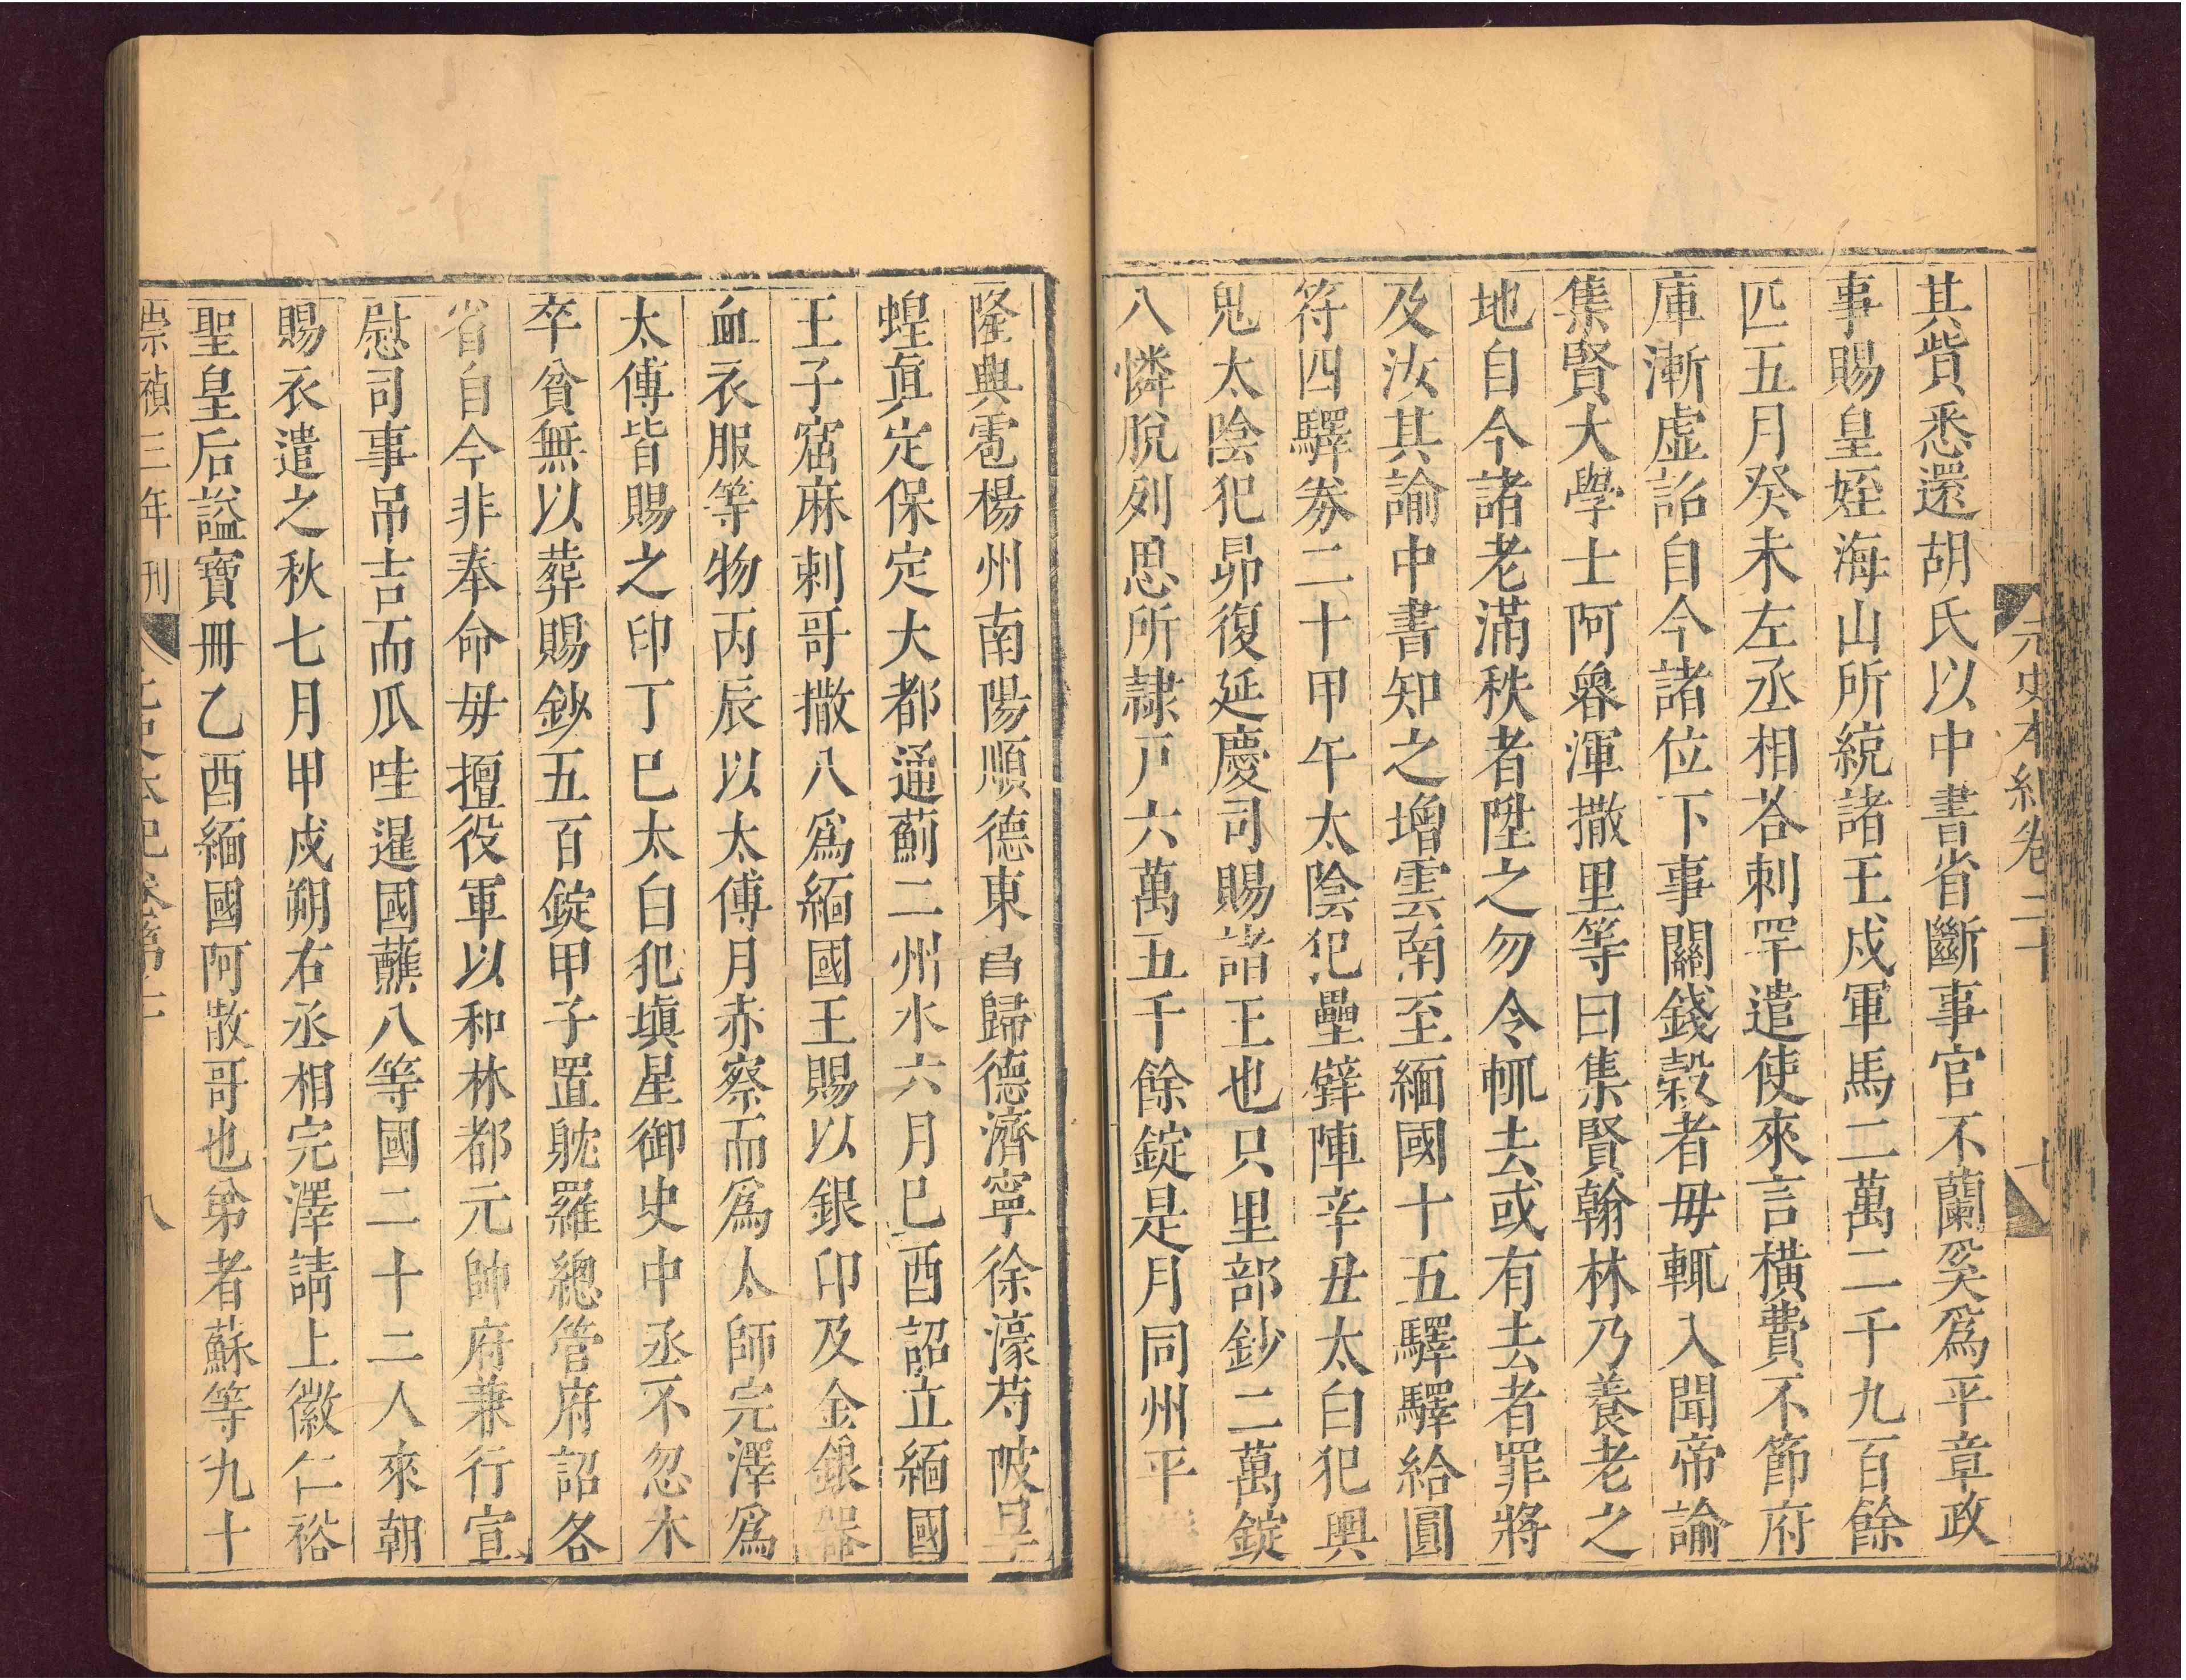 元史本紀卷二十 七
其貲悉還胡氏以中書省斷事官不蘭奚爲平章政
事賜皇姪海山所統諸王戍軍馬二萬二千九百餘
匹五月癸未左丞相荅剌罕遣使來言橫費不節府
庫漸虚詔自今諸位下事關錢穀者毋輒入聞帝諭
集賢大學士阿魯渾撒里等曰集賢翰林乃養老之
地自今諸老滿秩者陞之勿令輒去或有去者罪將
及汝其諭中書知之增雲南至緬國十五驛驛給圓
符四驛劵二十甲午太陰犯壘壁陣辛丑太白犯輿
鬼太陰犯昴復延慶司賜諸王也只里部鈔二萬錠
八憐脫列思所隷戸六萬五千餘錠是月同州平
隆興雹楊州南陽順德東昌歸德濟寧徐濠芍陂旱
蝗眞定保定大都通薊二州水六月己酉詔立緬國
王子窟麻剌哥撒八爲緬國王賜以銀印及金銀器
皿衣服等物丙辰以太傅月赤察而爲太師完澤爲
太傅皆賜之印丁巳太白犯塡星御史中丞不忽木
卒貧無以葬賜鈔五百錠甲子置躭羅總管府詔各
省自今非奉命毋擅役軍以和林都元帥府兼行宣
慰司事吊吉而爪哇暹國蘸八等國二十二人來朝
賜衣遣之秋七月甲戍朔右丞相完澤請上徽仁裕
聖皇后謚寶冊乙酉緬國阿散哥也弟者蘇等九十
崇禎三年刊 八